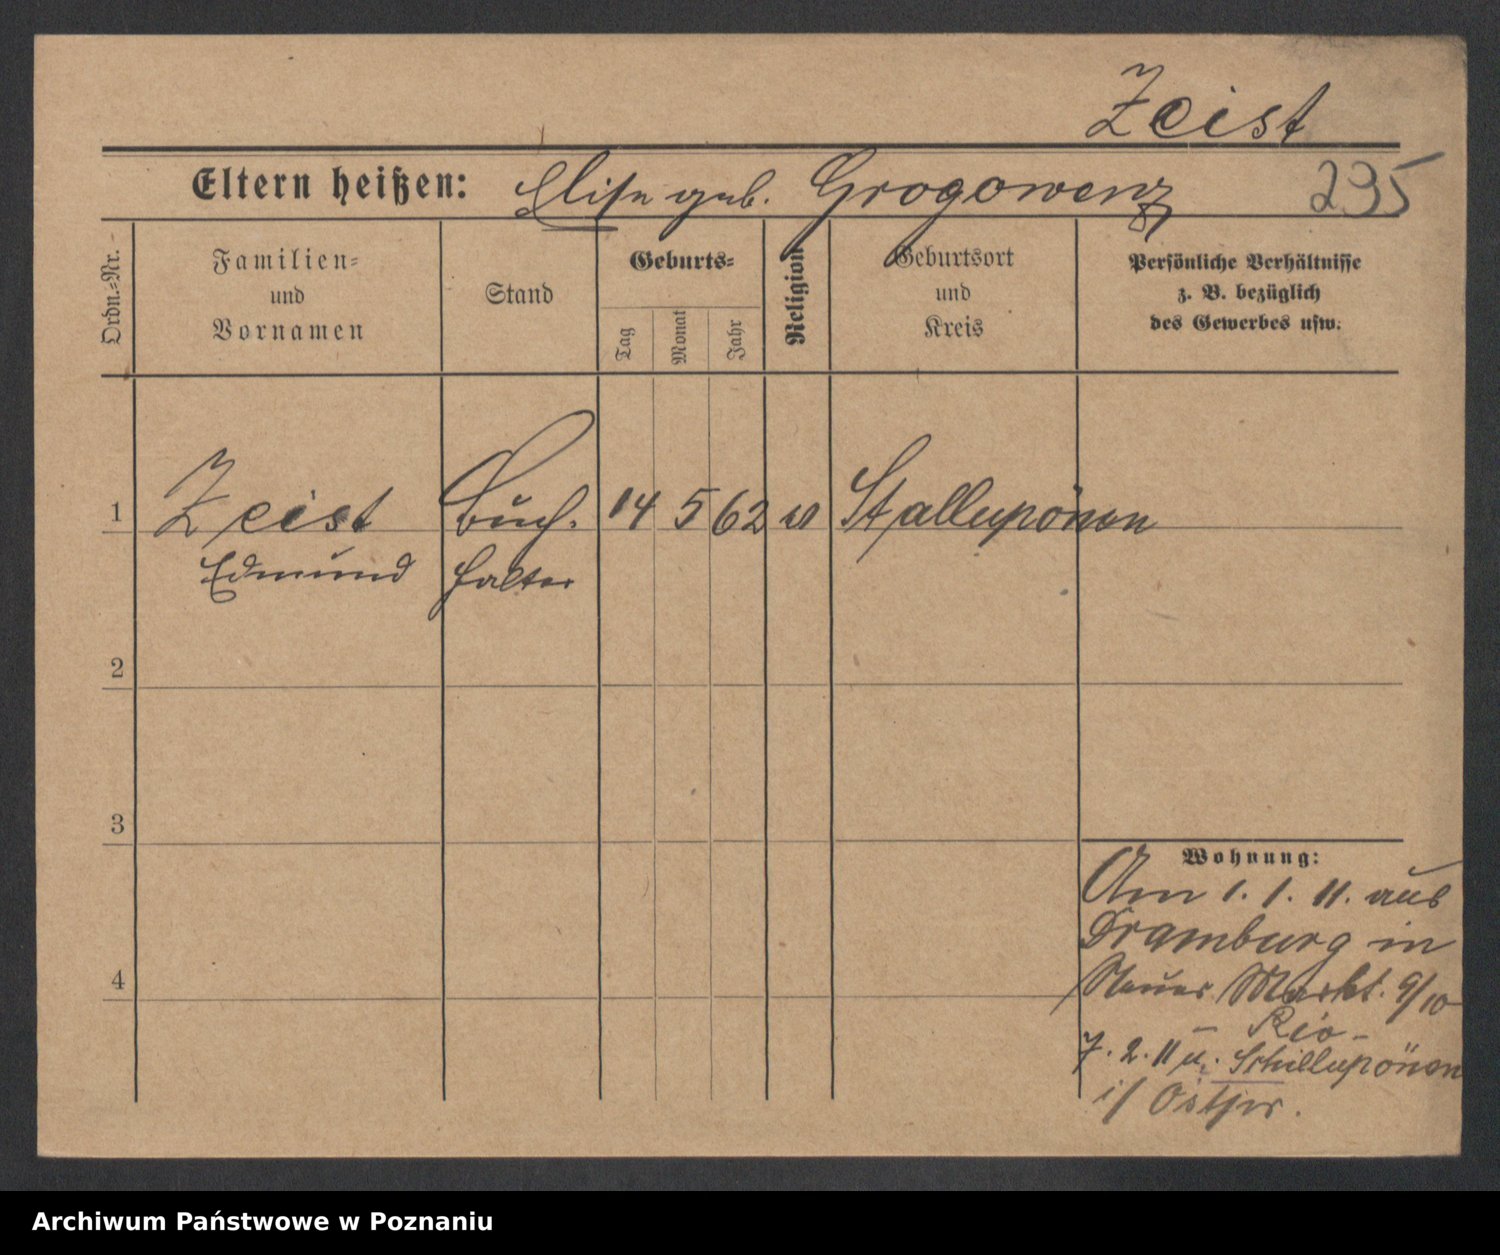 Zeist
Eltern heißen: Elise geb. Grogorenz 235
Ordn.-Nr.
Familien-
und
Vornamen
Stand
Geburts-
Tag
Monat
Jahr
Religion
Geburtsort
und
Kreis
Persönliche Verhältnisse
z. B. bezüglich
des Gewerbes usw.
1 Zeist Buch. 14 5 62 Stallupönen
Edmund halter
2
3
Wohnung:
Am 1. 1. 11. aus
Dramburg in
4 Neuer Markt. 9/10
7. 2. 11 u. Schillupönen
i/ Ostpr.
Archiwum Państwowe w Poznaniu